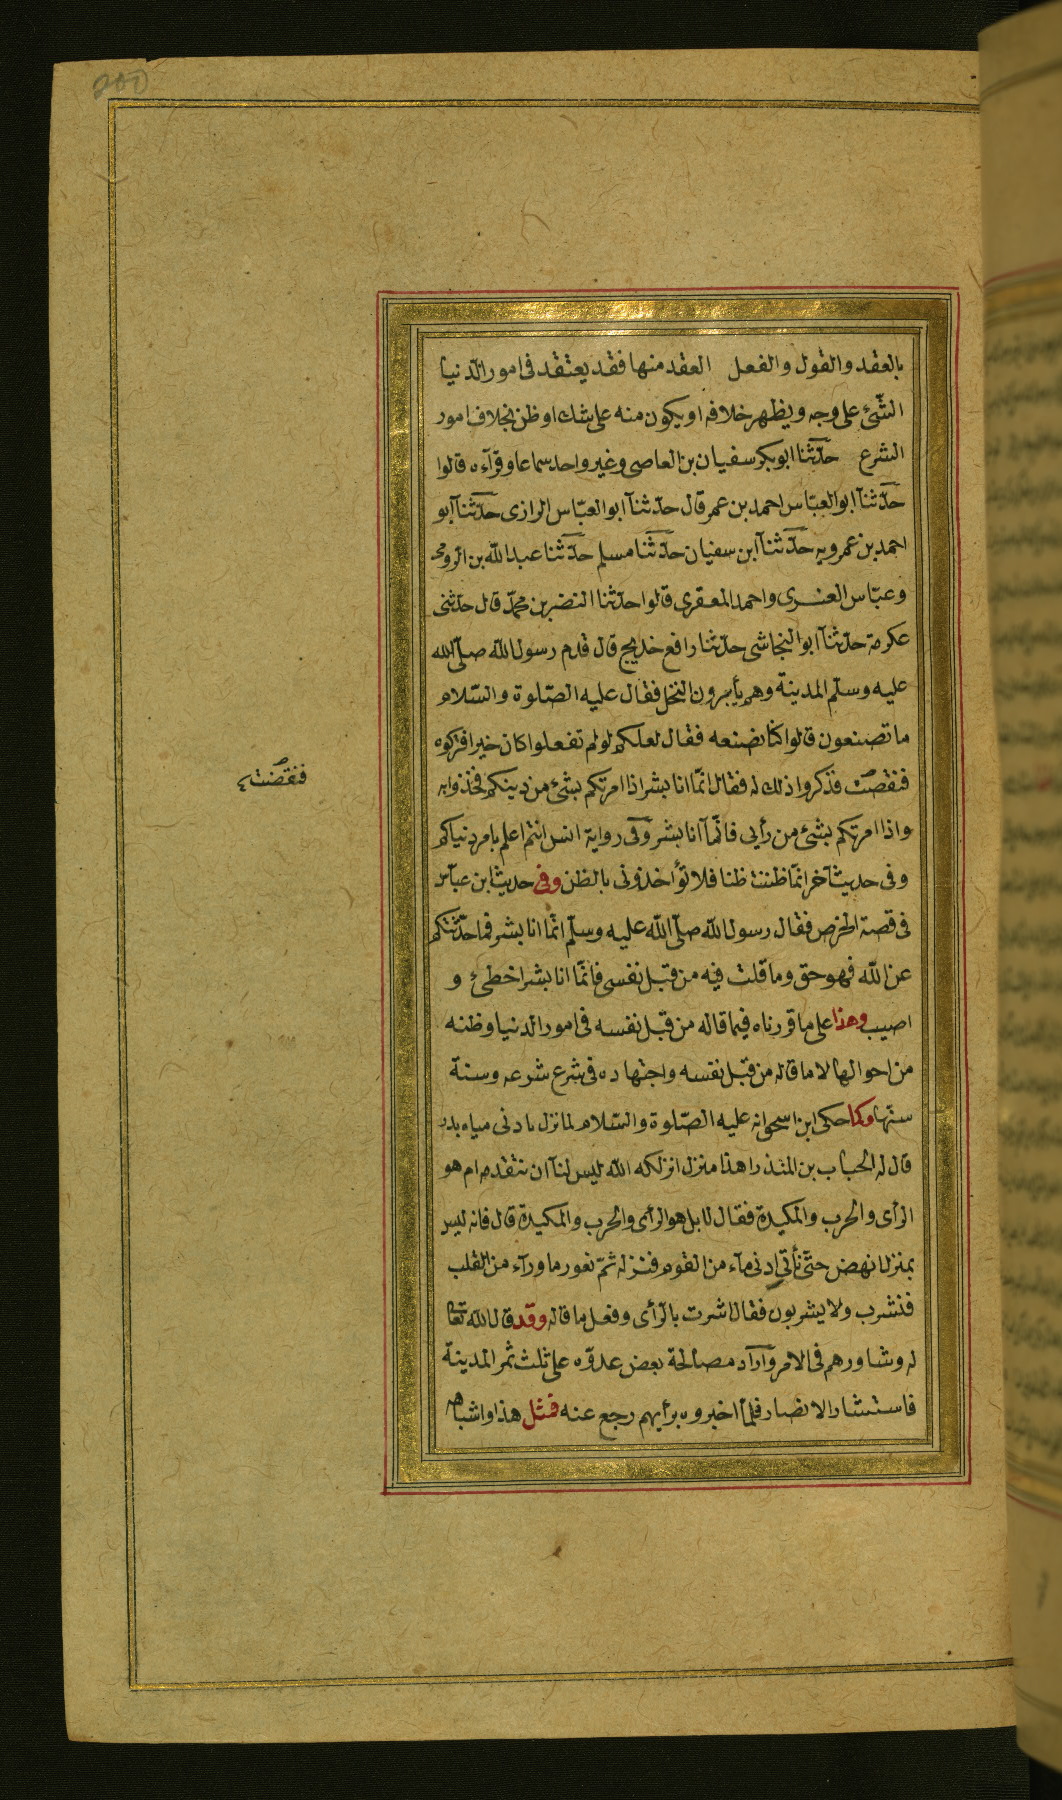 بالعقد والقول والفعل العقد منها فقد يعتقد فى امور الدنيا
الشّئ على وجه ويظهر خلافه او يكون منه على شك او ظن بخلاف امور
الشرع حدّثنا ابو بكر سفيان بن العاصى وغير واحد سماعا وقرآءه قالوا
حدّثنآ ابو العبّاس احمد بن عمر قال حدثنآ ابو العبّاس الرازى حدّثنآ ابو
احمد بن عمرويه حدّثنآ ابن سفيان حدّثنا مسلم حدّثنا عبد الله بن الرومى
وعبّاس العنبرى واحمد المعقرى قالوا حدثنا النضر بن محمّد قال حدّثنى
عكرمة حدّثنآ ابو النجاشى حدّثنا رافع خديج قال قدم رسول الله صلّى الله
عليه وسلّم المدينة وهم يأبرون النخل فقال عليه الصّلوة والسّلام
ما تصنعون قالوا كنا نصنعه فقال لعلكم لو لم تفعلوا كان خيرا فتركوه
فنقصت فذكروا ذلك له فقال انّما انا بشر اذا امرتكم بشئ من دينكم فخذوا به
واذا امرتكم بشئ من رأيى فانّمآ انا بشر وفى رواية انس انتم اعلم بامر دنياكم
وفى حديث آخر انمّا ظننت ظنا فلا تؤاخذونى بالظن وفى حديث ابن عبّاس
فى قصة الخرص فقال رسول الله صلّى الله عليه وسلّم انّما انا بشر فما حدّثتكم
عن الله فهو حق وما قلت فيه من قبل نفسى فانّما انا بشر اخطئ و
اصيب وهذا على ما قررناه فيما قاله من قبل نفسه فى امور الدنيا وظنه
من احوالها لا ما قاله من قبل نفسه واجتهاده فى شرع شرعه وسنة
سنّها وكما حكى ابن اسحق انه عليه الصّلوة والسّلام لما نزل بادنى مياه بدر
قال له الحباب بن المنذر اهذا منزل انزلكه الله ليس لنآ ان نتقدمه ام هو
الرأى والحرب والمكيدة فقال لا بل هو الرأى والحرب والمكيدة قال فانه ليس
بمنزل انهض حتّى نأتى ادنى مآء من القوم فننزله ثمّ نعور ما ورآءه من القلب
فنشرب ولا يشربون فقال اشرت بالرأى وفعل ما قاله وقد قال الله تعا
له وشاورهم فى الامر وآراد مصالحة بعض عدوّه على ثلث ثمر المدينة
فاستشار الانصار فلمّا اخبروه برأيهم رجع عنه فمثل هذا واشباهه
فنقضت
200